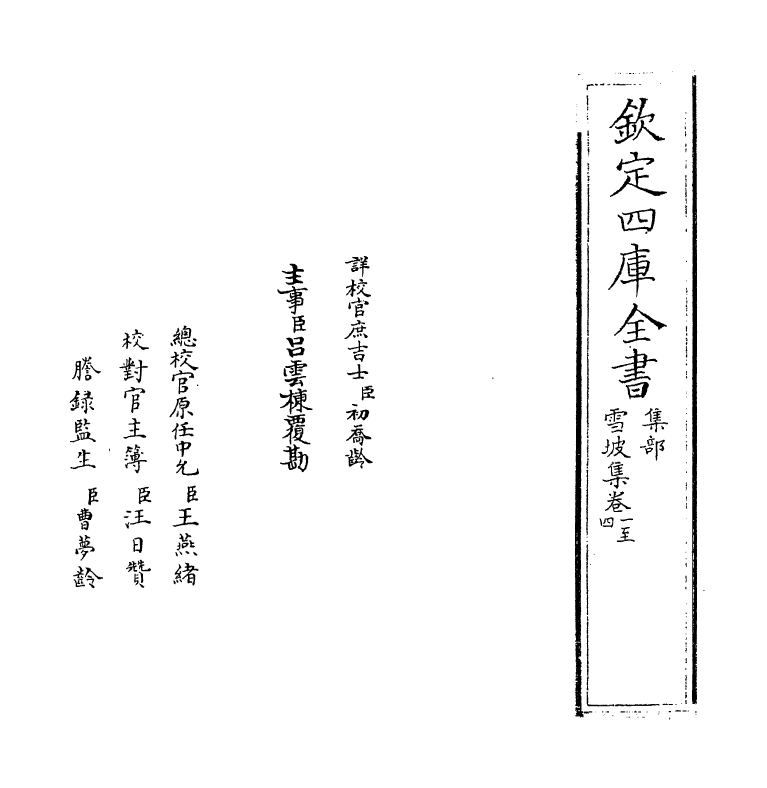 欽定四庫全書
集部
雪坡集卷一至四
詳校官庶吉士臣初喬齡
主事臣呂雲棟覆勘
總校官原任中允臣王燕緒
校對官主簿臣汪日贊
謄錄監生臣曹夢齡